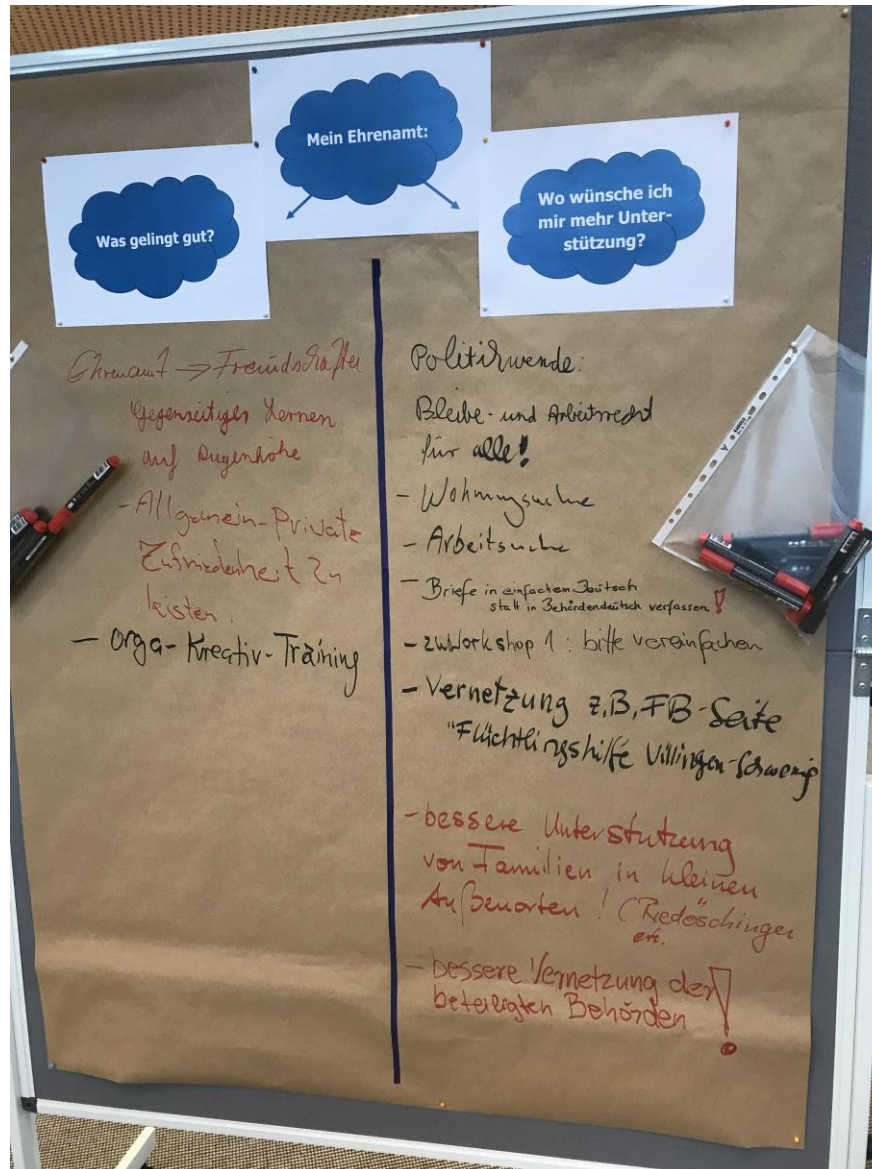 Mein Ehrenamt:
Was gelingt gut?
Wo wünsche ich
mir mehr Unter-
stützung?
Ehrenamt → Freundschaften
Gegenseitiges Lernen
auf Augenhöhe
- Allgemein-Private
Zufriedenheit zu
leisten.
- orga-Kreativ-Training
Politikwende:
Bleibe- und Arbeitsrecht
für alle!
- Wohnungsuche
- Arbeitsuche
- Briefe in einfachem Deutsch
statt in Behördendeutsch verfassen!
- zu Workshop 1: bitte vereinfachen
- Vernetzung z.B. FB-Seite
"Flüchtlingshilfe Villingen-Schwenig
- bessere Unterstutzung
von Familien in kleinen
Außenorten! (Riedöschingen
etc.
- bessere Vernetzung der
beteiligten Behörden!